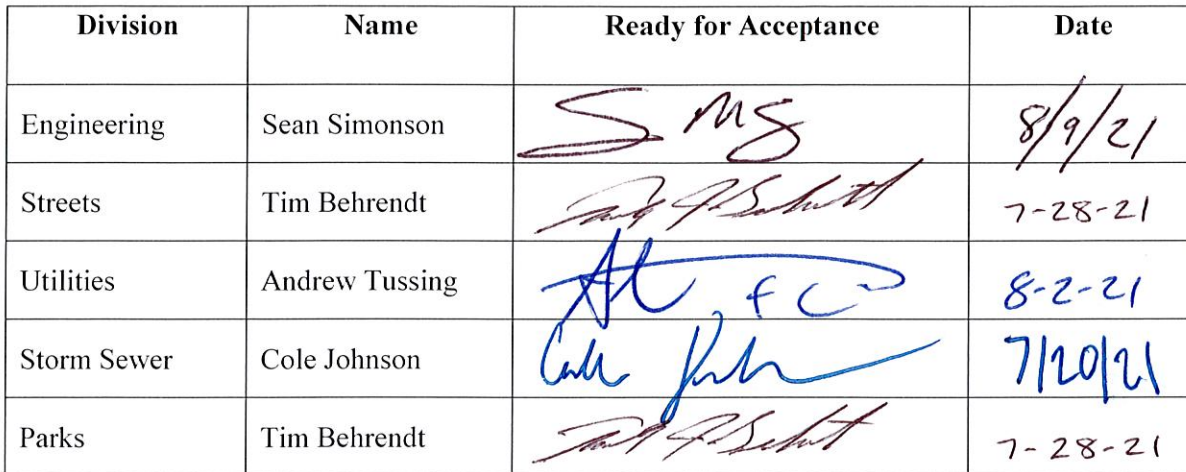 Division Name Ready for Acceptance Date
Engineering Sean Simonson 8/9/21
Streets Tim Behrendt 7-28-21
Utilities Andrew Tussing 8-2-21
Storm Sewer Cole Johnson 7/20/21
Parks Tim Behrendt 7-28-21